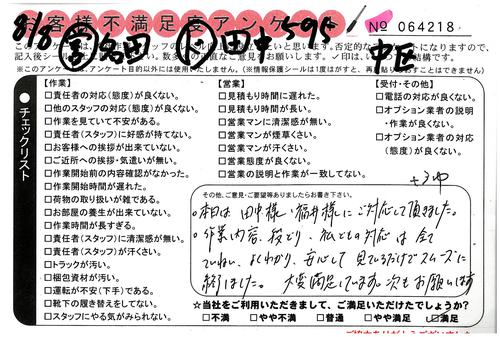 お客様不満足度アンケート
№ 064218
8/8 ㊂名田 田中 595 中区
※このアンケートは、アンケート目的以外には使用いたしません。(※情報保護シールは1度はがすと、再度貼りなおすことはできません)
●チェックリスト
【作業】
□責任者の対応(態度)が良くない。
□他のスタッフの対応(態度)が良くない。
□作業を見ていて不安がある。
□責任者(スタッフ)に好感が持てない。
□お客様への挨拶が出来ていない。
□ご近所への挨拶・気遣いが無い。
□作業開始前の内容確認がなかった。
□作業開始時間が遅れた。
□荷物の取り扱いが雑である。
□お部屋の養生が出来ていない。
□作業時間が長すぎる。
□責任者(スタッフ)に清潔感が無い。
□責任者(スタッフ)が汗くさい。
□トラックが汚い。
□梱包資材が汚い。
□運転が不安(下手)である。
□靴下の履き替えをしてない。
□スタッフにやる気がみられない。
【営業】
□見積もり時間に遅れた。
□見積もり時間が長い。
□営業マンに清潔感が無い。
□営業マンが煙草くさい。
□営業マンが汗くさい。
□営業態度が良くない。
□営業の説明と作業が一致してない。
【受付・その他】
□電話の対応が良くない。
□オプション業者の説明
・作業が良くない。
□オプション業者の対応
(態度)が良くない。
その他、ご意見・ご要望等ありましたらお書き下さい。
。本日は田中様、福井様にご対応して頂きました。
。作業内容、段どり、私どもの対応は全て
ていねい、よくわかり、安心して見ているだけでスムーズに
終りました。大変満足しています。次もお願いします
☆当社をご利用いただきまして、ご満足いただけたでしょうか?
□不満 □やや不満 □普通 □やや満足 ☑満足